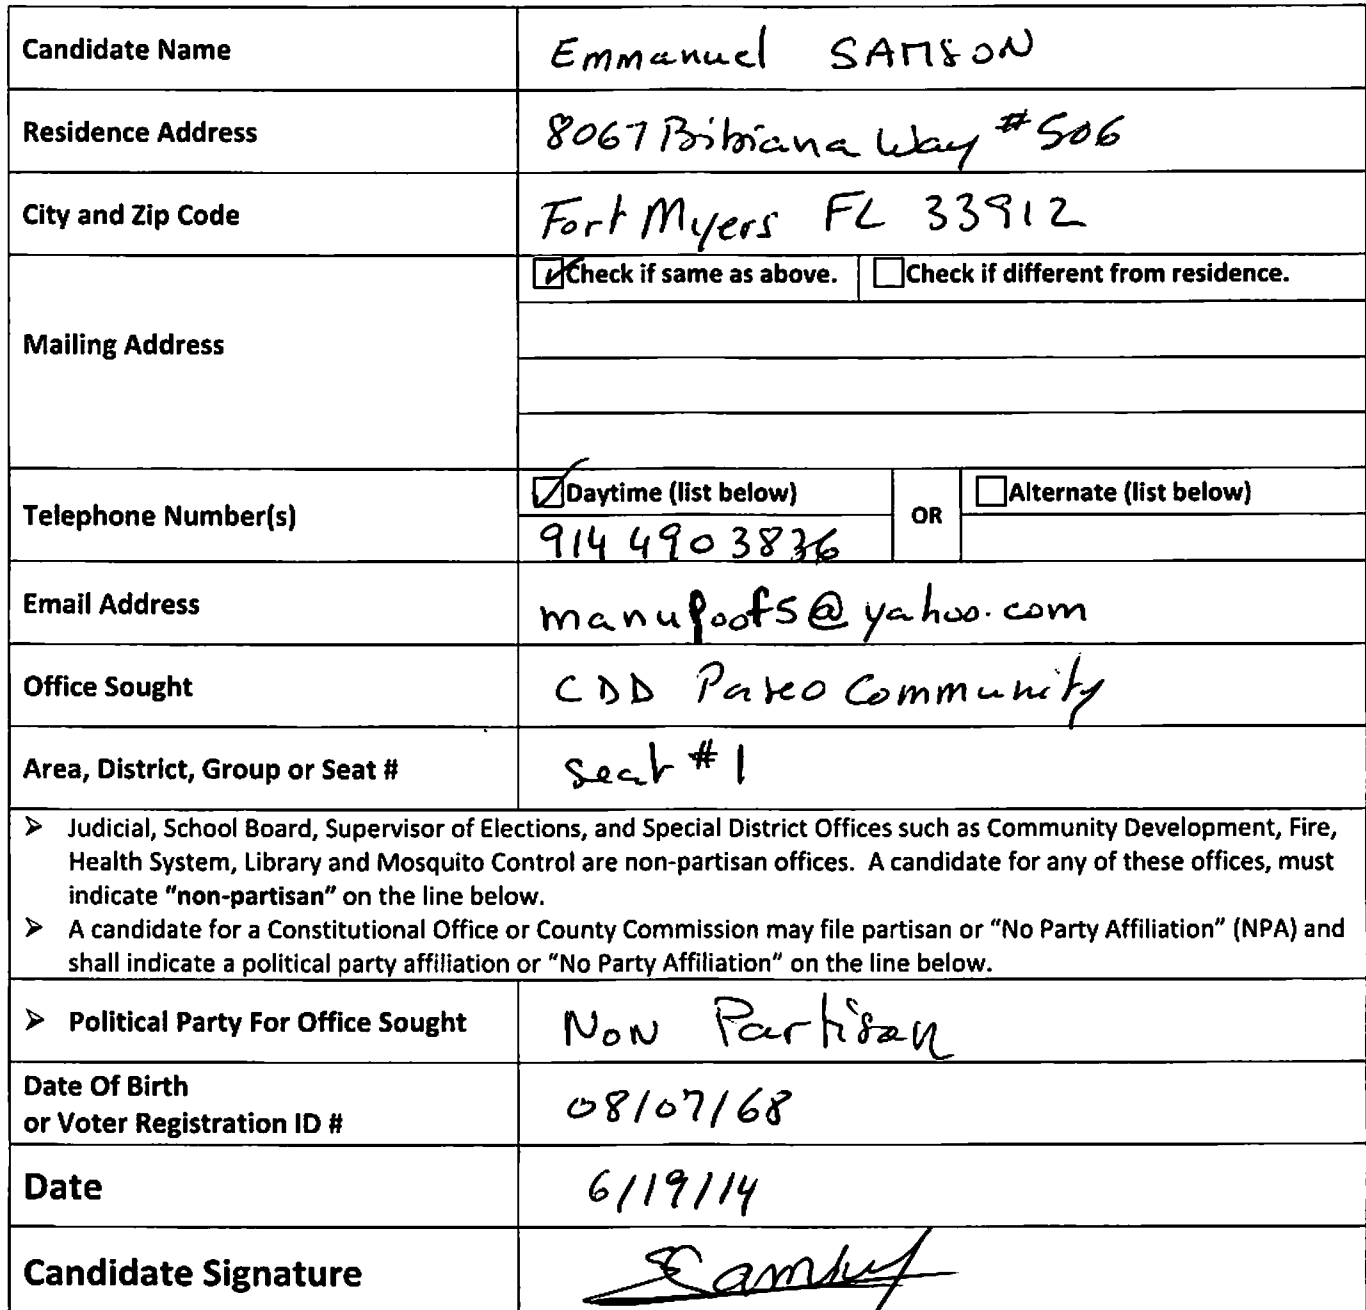 Candidate Name Emmanuel SAMSON
Residence Address 8067 Bibiana Way #506
City and Zip Code Fort Myers FL 33912
Mailing Address
Check if same as above. Check if different from residence.
Telephone Number(s)
Daytime (list below) OR Alternate (list below)
914 490 3836
Email Address manupoofs@yahoo.com
Office Sought CDD Paseo Community
Area, District, Group or Seat # Seat #1
➢ Judicial, School Board, Supervisor of Elections, and Special District Offices such as Community Development, Fire,
Health System, Library and Mosquito Control are non-partisan offices. A candidate for any of these offices, must
indicate "non-partisan" on the line below.
➢ A candidate for a Constitutional Office or County Commission may file partisan or "No Party Affiliation" (NPA) and
shall indicate a political party affiliation or "No Party Affiliation" on the line below.
➢ Political Party For Office Sought Non Partisan
Date Of Birth
or Voter Registration ID # 08/07/68
Date 6/19/14
Candidate Signature